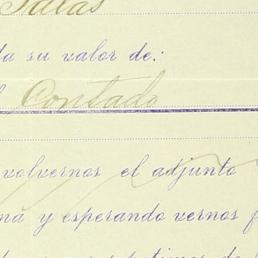 Salas
da su valor de:
Contado
volvernos el adjunto
ma y esperando vernos f